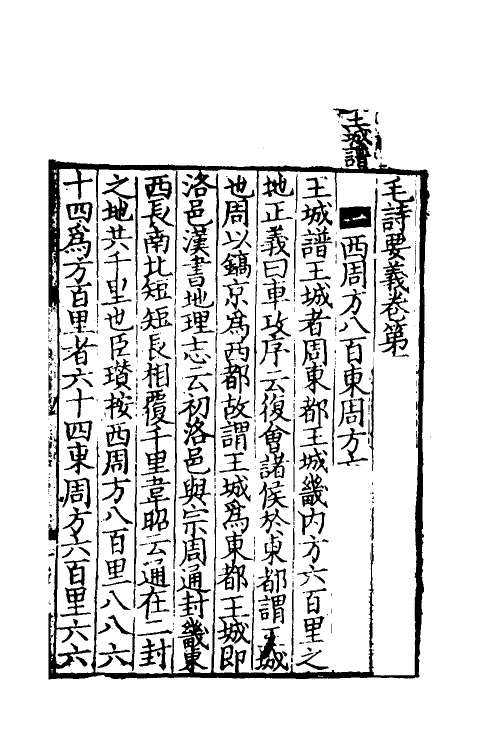 王城譜
毛詩要義卷第
一西周方八百東周方六
王城譜王城者周東都王城畿內方六百里之
地正義曰車攻序云復會諸侯於東都謂王城
也周以鎬京為西都故謂王城為東都王城即
洛邑漢書地理志云初洛邑與宗周通封畿東
西長南北短短長相覆千里韋昭云通在二封
之地共千里也臣瓚按西周方八百里八八六
十四為方百里者六十四東周方六百里六六